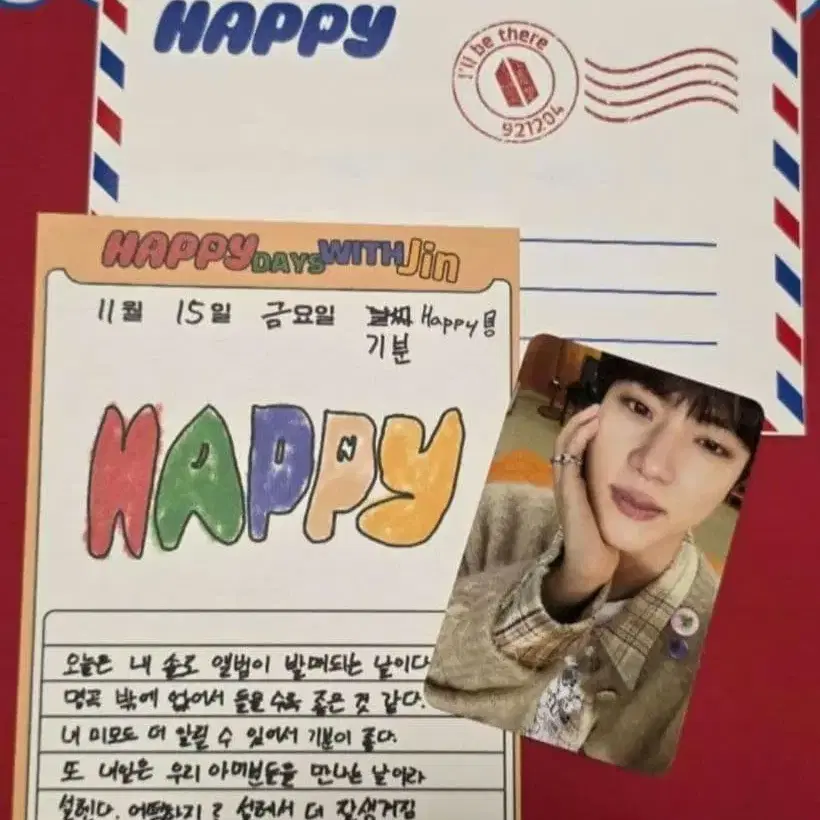 HAPPY
I'll be there
921204
HAPPY DAYS WITH Jin
11월 15일 금요일 날씨 Happy
기분
HAPPY
오늘은 내 솔로 앨범이 발매되는 날이다
명곡 밖에 없어서 들을수록 좋은 것 같다.
내 미모도 더 알릴 수 있어서 기분이 좋다.
또 내일은 우리 아미분들을 만나는 날이라
설렌다. 어떡하지? 설레서 더 잘생겨짐